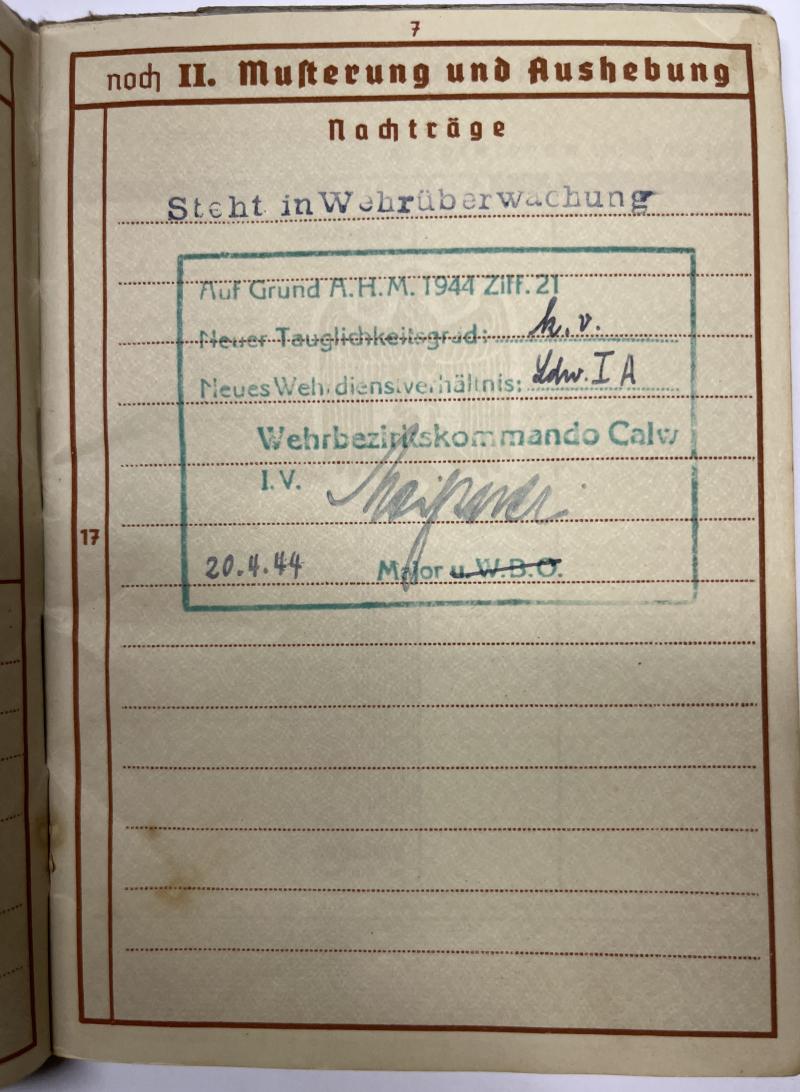 7
noch II. Musterung und Aushebung
Nachträge
Steht in Wehrüberwachung
Auf Grund A.H.M. 1944 Ziff. 21
Neuer Tauglichkeitsgrad: k.v.
Neues Wehrdienstverhältnis: Ldw. I A
Wehrbezirkskommando Calw
I.V.
17
20.4.44 Major u. W.B.O.